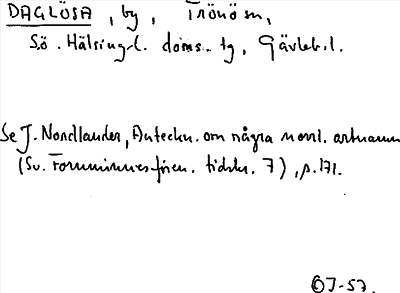 DAGLÖSA, by, Trönö sn,
Sö. Hälsingl. doms. tg, Gävleb. l.
Se J. Nordlander, Anteckn. om några norrl. ortnamn
(Sv. Fornminnesfören. tidskr. 7), p. 171.
OJ-57.